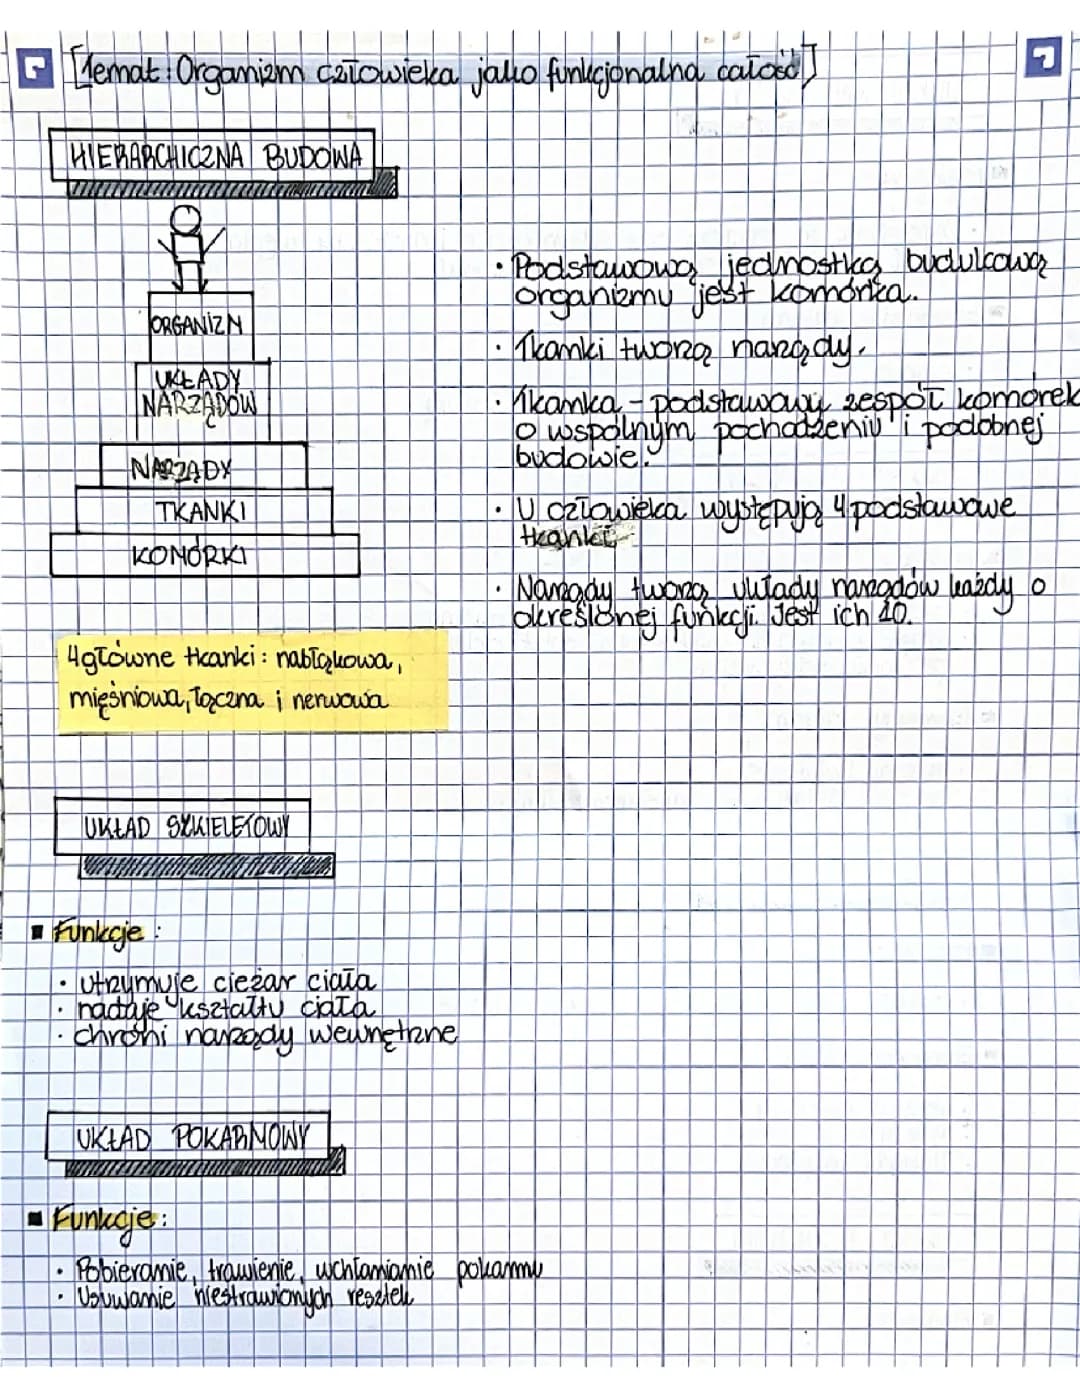 [Temat: Organizm człowieka jako funkcjonalna całość]
HIERARCHICZNA BUDOWA
ORGANIZM
UKŁADY
NARZĄDÓW
NARZĄDY
TKANKI
KOMÓRKI
• Podstawową jednostką budulcową
organizmu jest komórka.
• Tkanki tworzą narządy.
• Tkanka - podstawowy zespół komórek
o wspólnym pochodzeniu i podobnej
budowie.
• U człowieka występują 4 podstawowe
tkanki
• Narządy tworzą układy narządów każdy o
określonej funkcji. Jest ich 10.
4 główne tkanki: nabłąkowa,
mięśniowa, łączna i nerwowa
UKŁAD SZKIELETOWY
▪ Funkcje:
• utrzymuje cieżar ciała
• nadaje kształtu ciała
• chroni narządy wewnętrzne
UKŁAD POKARMOWY
▪ Funkcje:
• Pobieranie, trawienie, wchłanianie pokarmu
• Usuwanie niestrawionych resztek